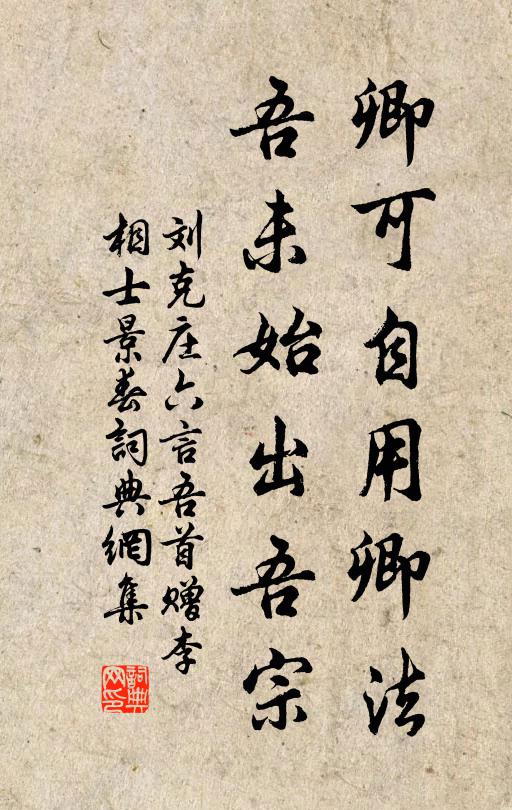 卿可自用卿法
吾未始出吾宗
刘克庄六言吾首赠李
相士景春詞典網集
詞典网印